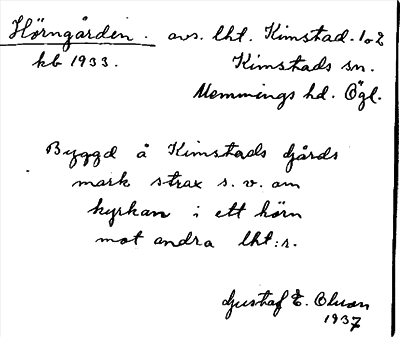 Hörngården. avs. lht. Kimstad 1o2
kb 1933. Kimstads sn.
Memmings hd. Ögl.
Byggd å Kimstads gårds
mark strax s. v. om
kyrkan i ett hörn
mot andra lht:r.
Gustaf E. Olson
1937